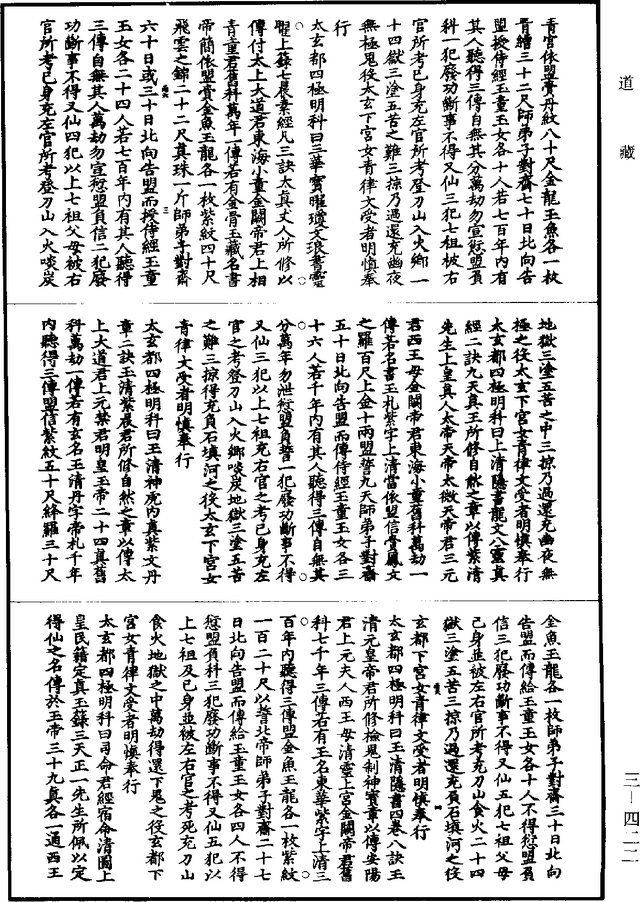 道藏
青宮依盟賷丹紋八十尺金龍玉魚各一枚
青繒三十二尺師弟子對齋七十日北向告
盟授侍經玉童玉女各十人若七百年內有
其人聽得三傳自無其分萬劫勿宣愆盟負
科一犯廢功斷事不得又仙三犯七祖被右
官所考已身充左官所考登刀山入火鄉一
十四獄三塗五苦之難三掠乃過還充幽夜
無極鬼役太玄下宮女青律文受者明慎奉
行
太玄都四極明科曰三華寶曜瓊文琅書靈
曜上籙七晨素經凡三訣太真丈人所修以
傳付太上大道君東海小童金闕帝君上相
青童君舊科萬年一傳若有金骨玉藏名書
帝簡依盟賞金魚玉龍各一枚紫紋四十尺
飛雲之錦二十二尺真珠一斤師弟子對齋
六十日或三十日北向告盟而授侍經玉童
玉女各二十四人若七百年內有其人聽得
三傳自無其人萬劫勿宣愆盟負信二犯廢
功斷事不得又仙四犯以上七祖父母被右
官所考已身充左官所考登刀山入火啖炭
地獄三塗五苦之中三掠乃過還充幽夜無
極之役太玄下宮女青律文受者明慎奉行
太玄都四極明科曰上清隱書龍文八靈真
經二訣九天真王所修自然之章以傳紫清
先生上皇真人太帝天帝太微天帝君三元
君西王母金闕帝君東海小童舊科萬劫一
傳若名書玉札紫字上清當依盟信賞鳳文
之羅百尺上金十兩盟誓九天師弟子對齋
五十日北向告盟而傳侍經玉童玉女各三
十六人若千年內有其人聽得三傳自無其
分萬年勿泄愆盟負誓一犯廢功斷事不得
又仙三犯以上七祖充右官之考已身充左
官之考登刀山入火鄉啖炭地獄三塗五苦
之難三掠得充負石填河之役太玄下宮女
青律文受者明慎奉行
太玄都四極明科曰玉清神虎內真紫文丹
章二訣玉清紫夜君所修自然之章以傳太
上大道君上元紫君明皇玉帝二十四真舊
科萬劫一傳若有玄名玉清丹字帝札千年
內聽得三傳盟信紫紋五十尺絳羅三十尺
金魚玉龍各一枚師弟子對齋三十日北向
告盟而傳給玉童玉女各十人不得愆盟負
信三犯廢功斷事不得又仙五犯七祖父母
己身並被左右官所考充刀山食火二十四
獄三塗五苦三掠乃過還充負石填河之役
玄都下宮女青律文受者明慎奉行
太玄都四極明科曰玉清隱書四卷八訣玉
清元皇帝君所修檢鬼制神寶章以傳安陽
君上元夫人西王母清靈上宮金闕帝君舊
科七千年三傳若有玉名東華紫字上清三
百年內聽得三傳盟金魚玉龍各一枚紫紋
一百二十尺以誓北帝師弟子對齋二十七
日北向告盟而傳給玉童玉女各四人不得
愆盟負科三犯廢功斷事不得又仙五犯以
上七祖及已身並被左右官之考死充刀山
食火地獄之中萬劫得還下鬼之役玄都下
宮女青律文受者明慎奉行
太玄都四極明科曰司命君經宿命清圖上
皇民籍定真玉籙三天正一先生所佩以定
得仙之名傳於玉帝三十九真各一通西王
三—四二二